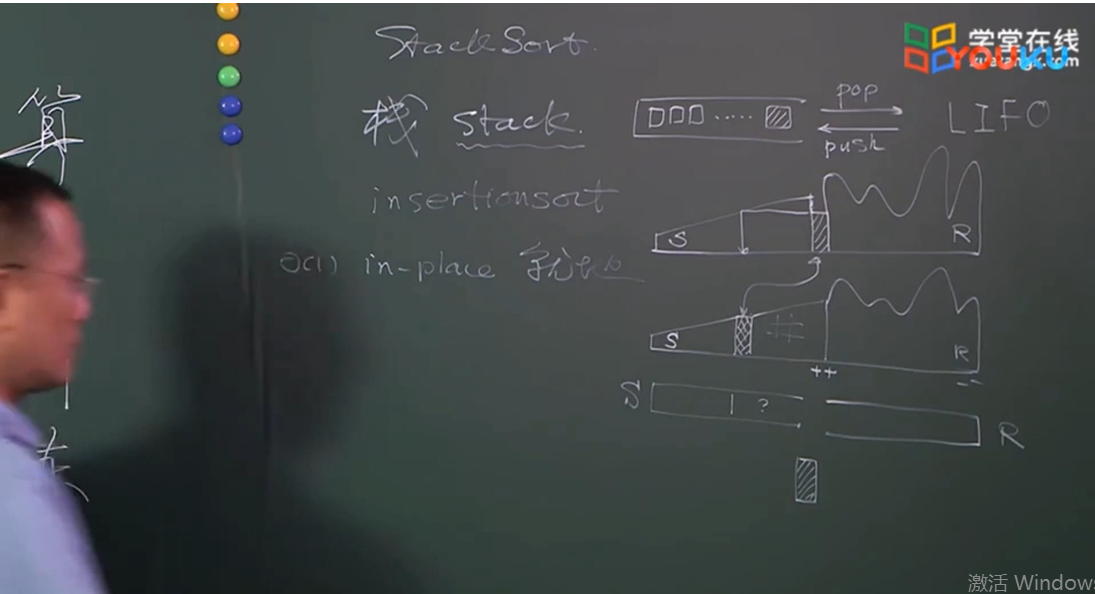 StackSort.
学堂在线
xuetangx.com
YOUKU
算
栈 stack.
pop
push
LIFO
insertionsort
S
R
O(1) in-place 就地
S
R
++
--
S
?
R
激活 Windows